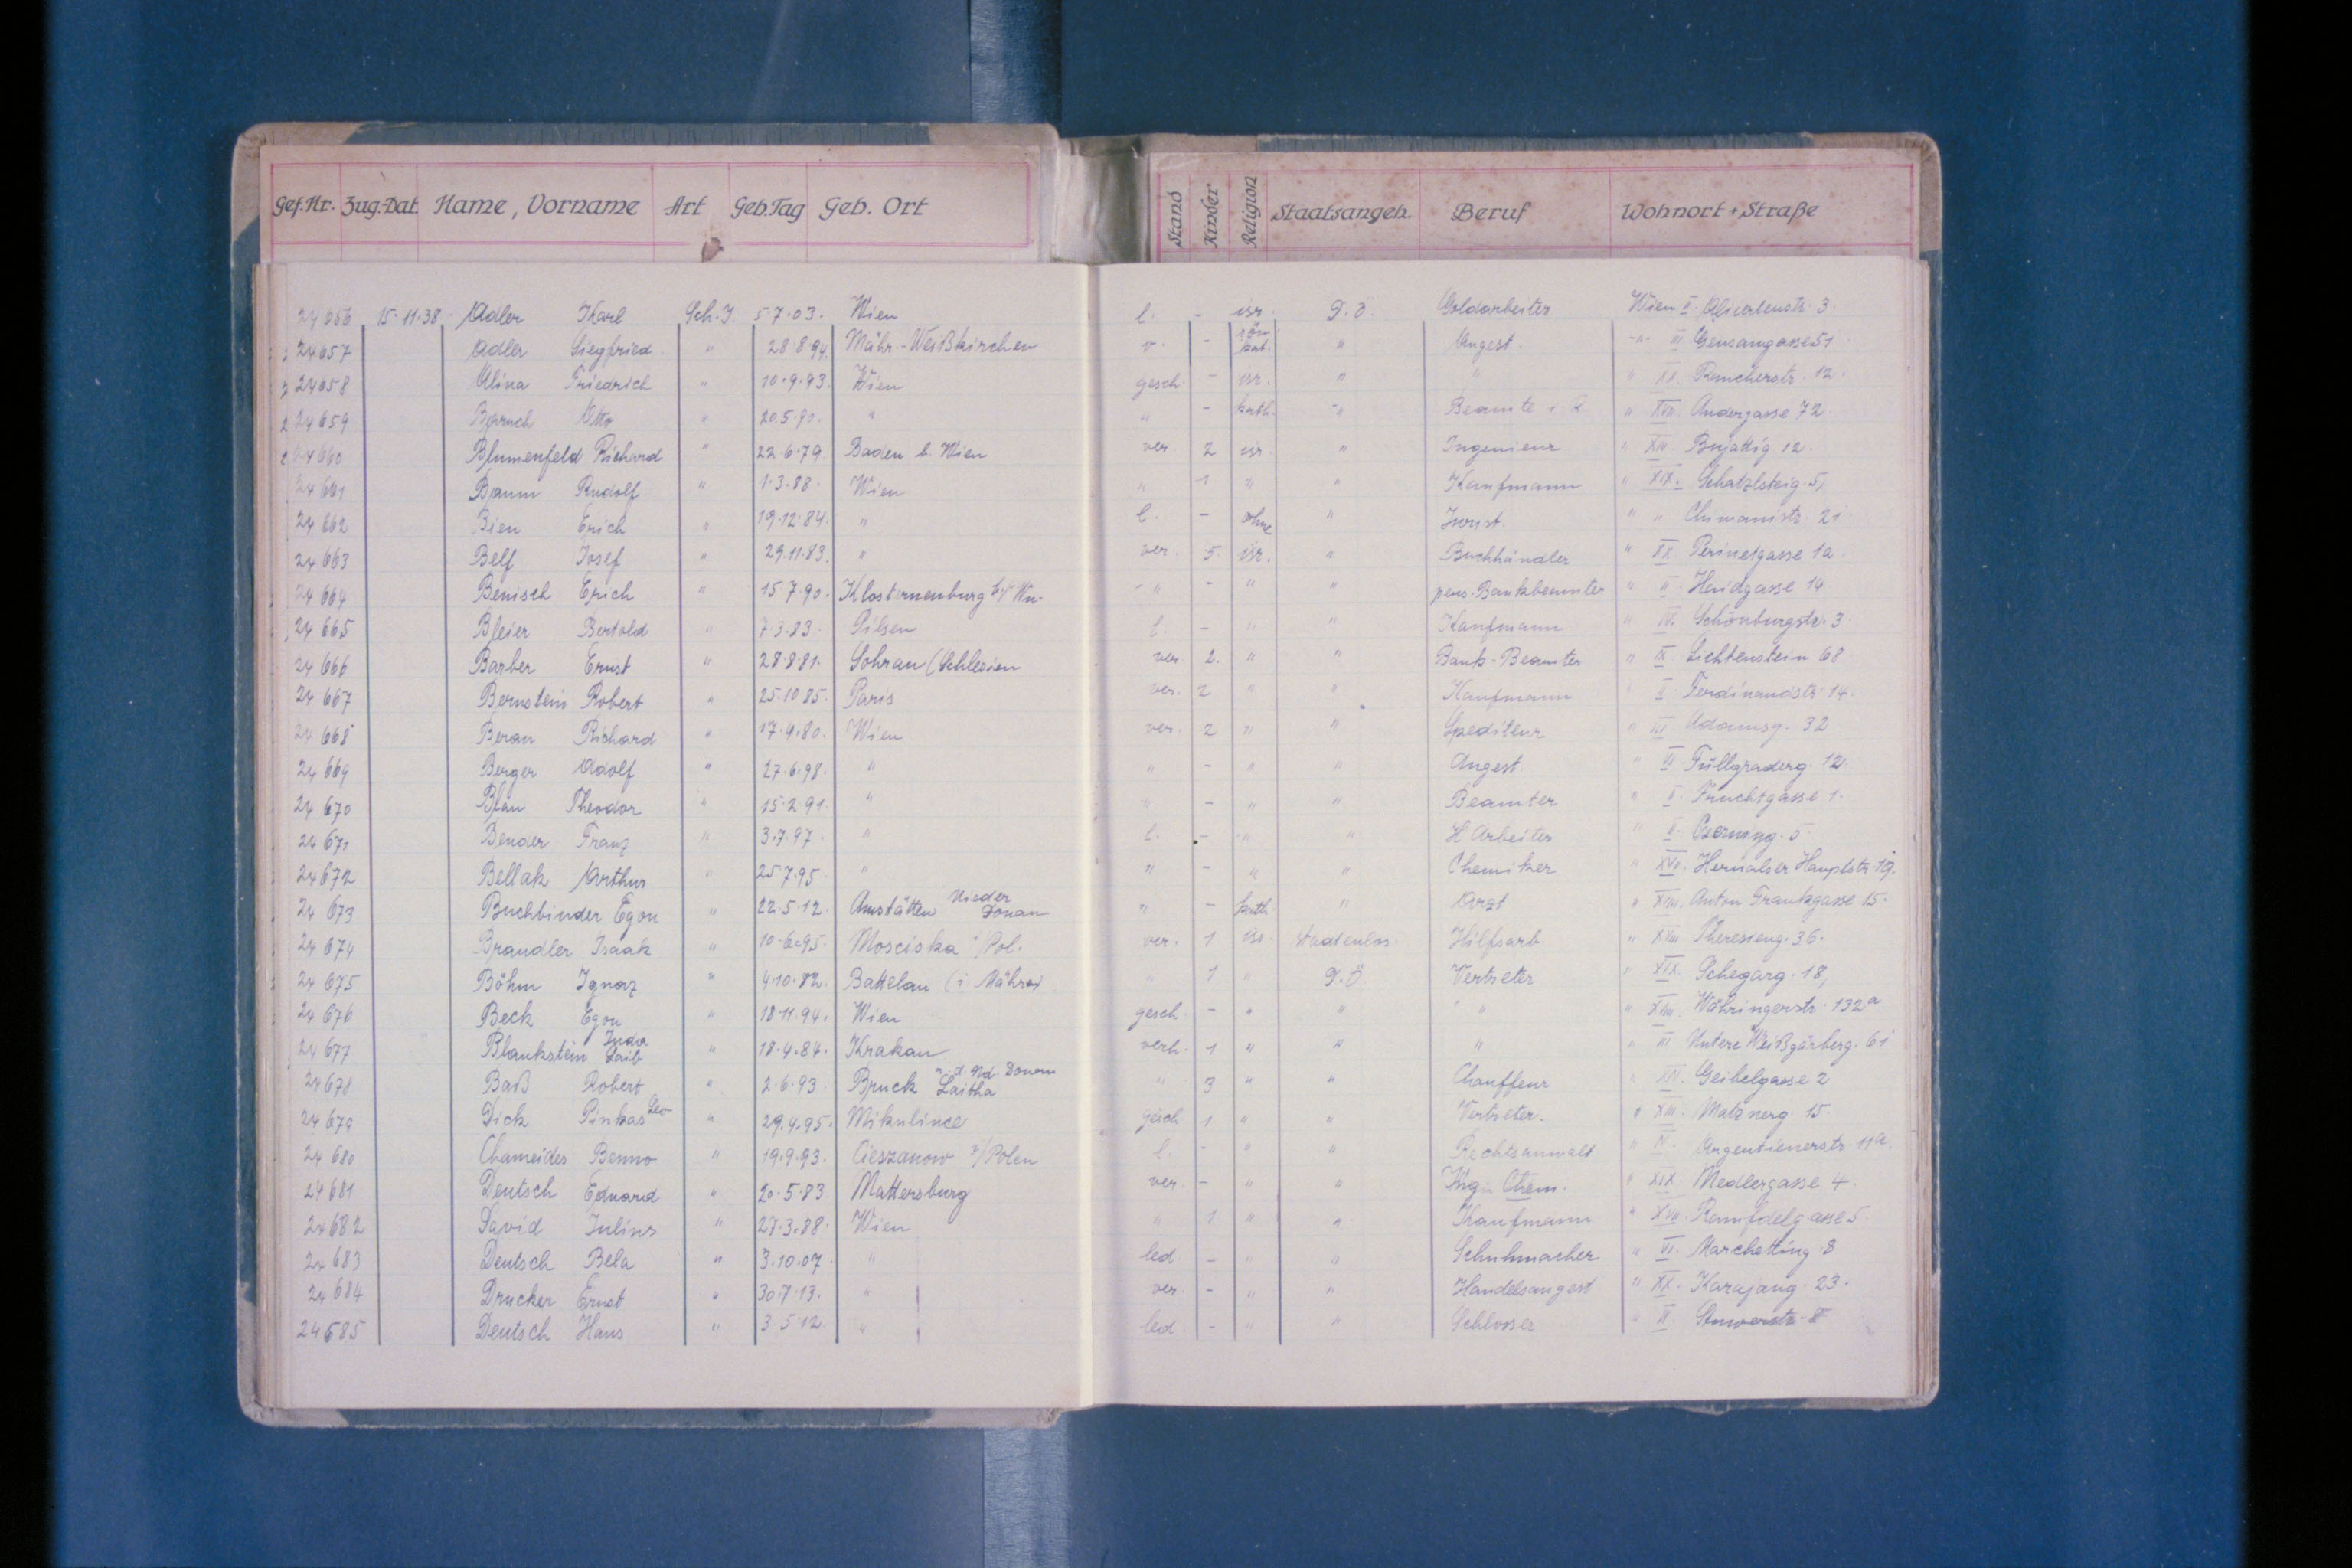 Gef.Nr. Zug.-Dat. Name, Vorname Art Geb.Tag Geb. Ort Stand Kinder Religion Staatsangeh. Beruf Wohnort + Straße
24656 15.11.38. Adler Karl Sch.J. 5.7.03. Wien l. - isr. D.Ö. Goldarbeiter Wien II. 3.
24657 Adler Siegfried " 28.8.94. Mähr.-Weißkirchen v. - röm. kat. " Angest. -"- III. Geusaugasse 51
24658 Alina Friedrich " 10.9.93. Wien gesch. - isr. " " " XX. Rauscherstr. 12.
24659 Baruch Otto " 20.5.90. " " - kath. -" Beamte i. R. " XVII. Andergasse 72.
24660 Blumenfeld Richard " 22.6.79. Baden b. Wien ver 2 isr. " Ingenieur " Bujattig 12.
24661 Baum Rudolf " 1.3.88. Wien " 1 " " Kaufmann " XIX. Schatzlsteig. 5,
24662 Bien Erich " 19.12.84. " l. - ohne " Jurist. " " Chimanistr. 21
24663 Belf Josef " 29.11.83. " ver. 5. isr. " Buchhändler " XX. Perinetgasse 1a.
24664 Benisch Erich " 15.7.90. Klosterneuburg b/ Wn. -" - " " pens. Bankbeamter " II. Haidgasse 14.
24665 Bleier Bertold " 7.3.83. Pilsen l. - " " Kaufmann " IV. Schönburgstr. 3.
24666 Barber Ernst " 28.8.81. Sohrau (Schlesien ver. 2. " " Bank-Beamter " IX. Lichtenstein 68
24667 Bernstein Robert " 25.10.85. Paris ver. 2 " " Kaufmann " II. Ferdinandstr. 14.
24668 Beran Richard " 17.4.80. Wien ver. 2 " " Spediteur " III Adamsg. 32
24669 Berger Adolf " 27.6.98. " " - " " Angest. " VI. Füllgraderg. 12.
24670 Blau Theodor " 15.2.91. " " - " " Beamter " II. Fruchtgasse 1.
24671 Bender Franz " 3.7.97. " l. - " " H Arbeiter " II. Czerning. 5.
24672 Bellak Arthur " 25.7.95. " " - " " Chemiker " XVII. Hernalser Hauptstr.
24673 Buchbinder Egon " 22.5.12. Amstätten Nieder Donau " - kath. " Arzt " XVIII. Anton Frankgasse 15.
24674 Brandler Isaak " 10.6.95. Mosciska /Pol. ver. 1 isr. Staatenlos. Hilfsarb. " XVIII Theresieng. 36.
24675 Böhm Ignaz " 4.10.82. Battelau (i. Mähren " 1 " D.Ö. Vertreter " XIX. Schegarg. 18,
24676 Beck Egon " 18.11.94. Wien gesch. - " " " " XVIII. Währingerstr. 132a
24677 Blankstein Juda Laib " 18.4.84. Krakau verh. 1 " " " " III Untere Weißgärberg. 61
24678 Baß Robert " 2.6.93. Bruck a. d. Laitha Nd. Donau " 3 " " Chauffeur " Geibelgasse 2
24679 Dick Pinkas Leo " 29.4.95. Mikulince gesch 1 " " Vertreter. " Matznerg. 15.
24680 Chameides Benno " 19.9.93. Cieszanow /Polen l. - " " Rechtsanwalt " IV. Argentienerstr. 11a.
24681 Deutsch Eduard " 20.5.83. Mattersburg ver. - " " Ing. Chem. " XIX. Medlergasse 4.
24682 David Julius " 27.3.88. Wien " 1 " " Kaufmann " XVII. 5.
24683 Deutsch Bela " 3.10.07. " led - " " Schuhmacher " VI. Marchetting. 8
24684 Drucker Ernst " 30.7.13. " ver. - " " Handelsangest " XX. Karajang. 23.
24685 Deutsch Hans " 3.5.12. " led - " " Schlosser " II. Stuwerstr. 8